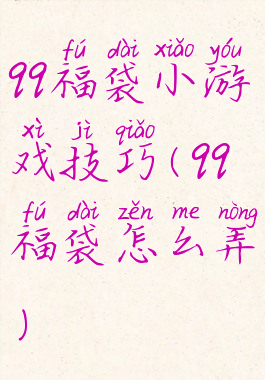 fú dài xiǎo yóu
99福袋小游
xì jì qiǎo
戏技巧(99
fú dài zěn me nòng
福袋怎么弄
)